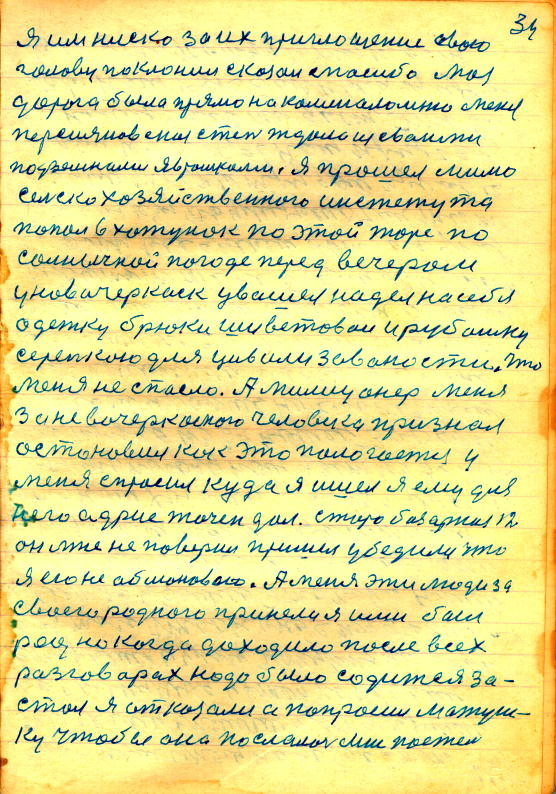 34
Я им ниско за их приглошение свою
голову поклонил сказал спасибо моя
дорога была прямо на каминаломню меня
персияновская степ ждала из своими
подземнами я врашками. Я прошел мимо
селскохозяйственного инстетута
попал в хотунок по этой жоре по
солнычной погоде перед вечером
у новочеркаск увашел надел на себя
одежку брюки шивётовои и рубашку
серенкою для цивили зованости. Что
меня не спасло. А милицонер меня
за не вочеркаского человика признал
остоновил как это пологается у
меня спросил куда я ишел я ему для
него адрис точен дал. старо базарная 12
он мне не поверил пришел убедился что
я его не абмоновал. А меня эти люди за
своего родного принели я ими был
рад но когда доходило после всех
разговорах надо было содится за-
стол я отказался а попросил матуш-
ку чтобы она послала мне постел